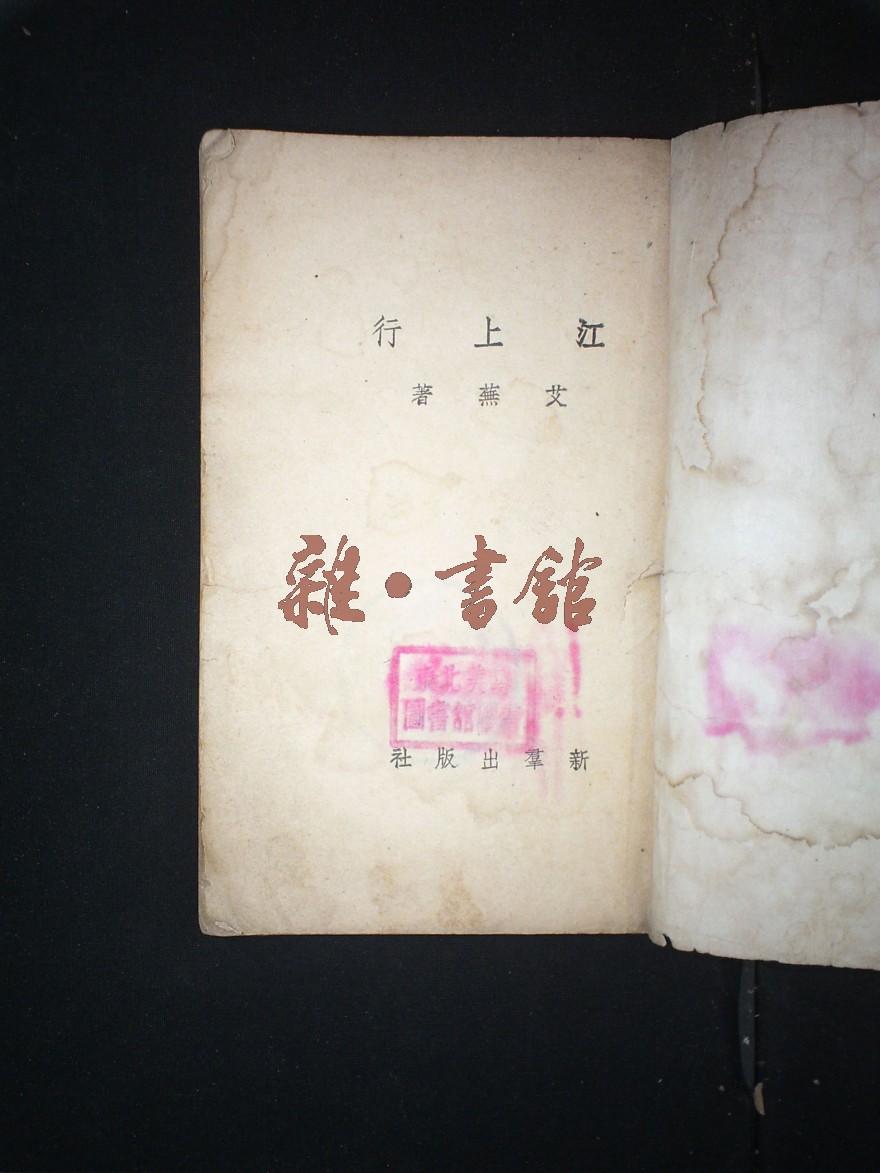 江上行
艾蕪著
雜·書館
圖書館
新羣出版社